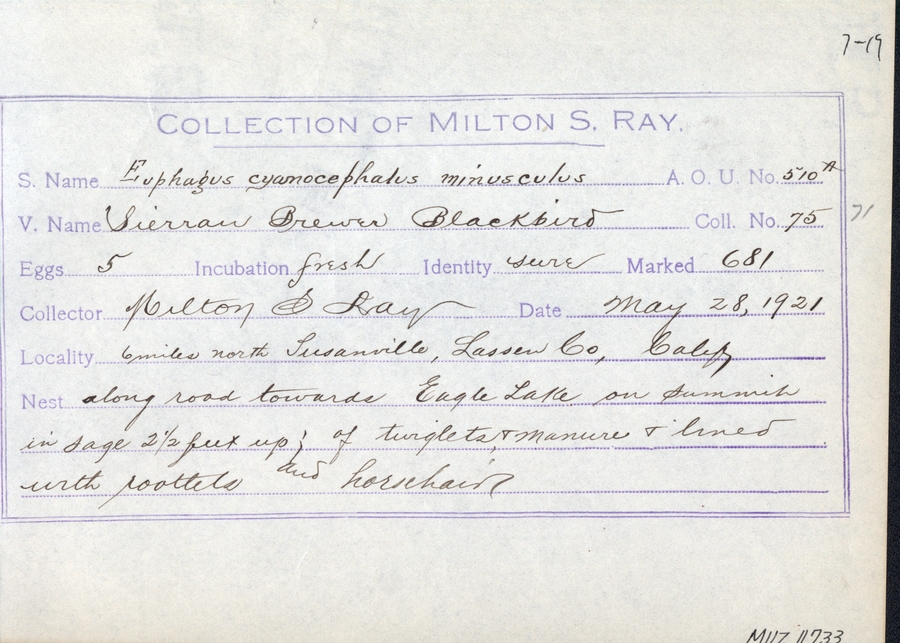 7-19
COLLECTION OF MILTON S. RAY.
S. Name Euphagus cyanocephalus minusculus A. O. U. No. 510A
V. Name Sierran Brewer Blackbird Coll. No. 75 71
Eggs 5 Incubation fresh Identity sure Marked 681
Collector Milton S Ray Date May 28, 1921
Locality 6 miles north Susanville, Lassen Co, Calif
Nest along road towards Eagle Lake on summit
in sage 2 1/2 feet up; of twiglets, & manure & lined
with rootlets and horsehair
MVZ 11733